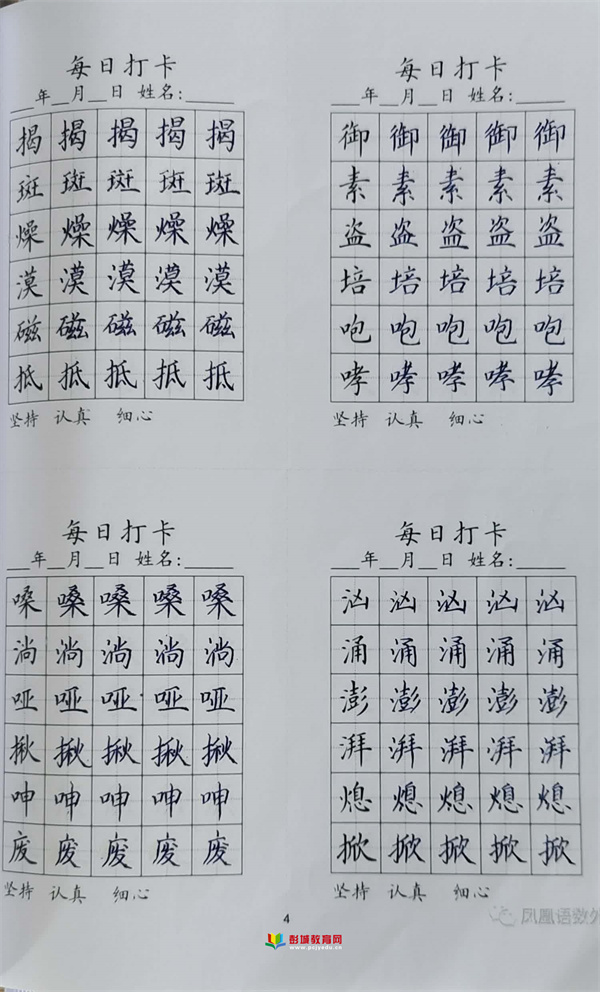 每日打卡
___年__月__日 姓名:_____
揭 揭 揭 揭 揭
斑 斑 斑 斑 斑
燥 燥 燥 燥 燥
漠 漠 漠 漠 漠
磁 磁 磁 磁 磁
抵 抵 抵 抵 抵
坚持 认真 细心
每日打卡
___年__月__日 姓名:_____
御 御 御 御 御
素 素 素 素 素
盗 盗 盗 盗 盗
培 培 培 培 培
咆 咆 咆 咆 咆
哮 哮 哮 哮 哮
坚持 认真 细心
每日打卡
___年__月__日 姓名:_____
嗓 嗓 嗓 嗓 嗓
淌 淌 淌 淌 淌
哑 哑 哑 哑 哑
揪 揪 揪 揪 揪
呻 呻 呻 呻 呻
废 废 废 废 废
坚持 认真 细心
每日打卡
___年__月__日 姓名:_____
汹 汹 汹 汹 汹
涌 涌 涌 涌 涌
澎 澎 澎 澎 澎
湃 湃 湃 湃 湃
熄 熄 熄 熄 熄
掀 掀 掀 掀 掀
坚持 认真 细心
4
凤凰语数外
彭城教育网
www.pcjyedu.cn